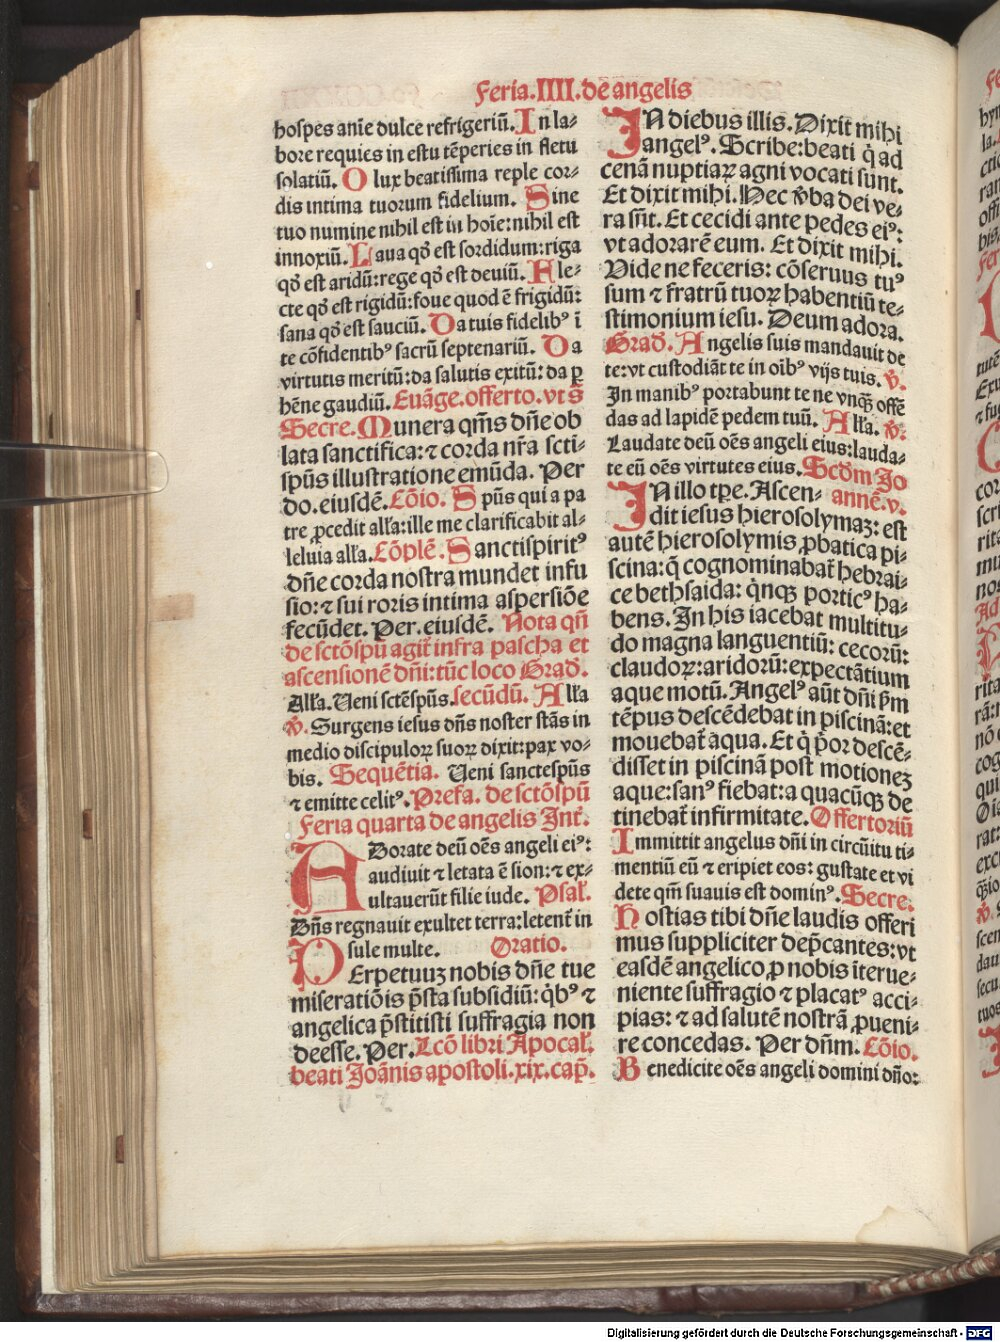 Feria.IIII.de ̄ angelis
hospes anīe dulce refrigeriū. In la⸗
bore requies in estu tēperies in fletu
solatiū. O lux beatissima reple cor⸗
dis intima tuorum fidelium. Sine
tuo numine nihil est in hoīe: nihil est
innoxiū. Laua qđ est sordidum: riga
qđ est aridū: rege qđ est deuiū. Fle⸗
cte qđ est rigidū: foue quod ē frigidū:
sana qđ est sauciū. Da tuis fidelibꝰ ī
te cōfidentibꝰ sacrū septenariū. Da
virtutis meritū: da salutis exitū: da ꝑ
hēne gaudiū. Euāge. offerto. vt s̄
Secre. Munera qm̄s dn̄e ob
lata sanctifica: ⁊ corda nr̄a scti⸗
spūs illustratione emūda. Per
do. eiusdē. Cōio. Spūs qui a pa
tre ꝓcedit all'a: ille me clarificabit al⸗
leluia all'a. Cōplē. Sanctispiritꝰ
dn̄e corda nostra mundet infu
sio: ⁊ sui roris intima aspersiōe
fecūdet. Per. eiusdē. Nota qn̄
de sctōspū agit̄ infra pascha et
ascensionē dn̄i: tūc loco Grad.
All'a. Ueni sctēspūs. secūdū. All'a
v̄. Surgens iesus dn̄s noster stās in
medio discipuloꝝ suoꝝ dixit: pax vo⸗
bis. Sequētia. Ueni sanctespūs
⁊ emitte celitꝰ. Prefa. de sctōspū
Feria quarta de angelis Int̄.
ADorate deū oēs angeli eiꝰ:
audiuit ⁊ letata ē sion: ⁊ ex⸗
ultauerūt filie iude. Psal'.
Dn̄s regnauit exultet terra: letent̄ in
sule multe. Oratio.
PErpetuuꝫ nobis dn̄e tue
miseratiōis p̄sta subsidiū: q̇bꝰ ⁊
angelica p̄stitisti suffragia non
deesse. Per. Lcō libri Apocal'.
beati Joānis apostoli. xix. cap̄.
IN diebus illis. Dixit mihi
angelꝰ. Scribe: beati q̇ ad
cenā nuptiaꝝ agni vocati sunt.
Et dixit mihi. Hec v̄ba dei ve⸗
ra sūt. Et cecidi ante pedes eiꝰ:
vt adorarē eum. Et dixit mihi.
Vide ne feceris: cōseruus tuꝰ
sum ⁊ fratrū tuoꝝ habentiū te⸗
stimonium iesu. Deum adora.
Grad. Angelis suis mandauit de
te: vt custodiāt te in oībꝰ vijs tuis. v̄.
In manibꝰ portabunt te ne vnqꝫ offē
das ad lapidē pedem tuū. All'a. v̄.
Laudate deū oēs angeli eius: lauda⸗
te eū oēs virtutes eius. Scdm̄ Jo
IN illo tp̄e. Ascen⸗ annē. v.
dit iesus hierosolymaꝫ: est
autē hierosolymis ꝓbatica pi⸗
scina: q̄ cognominabat̄ hebrai⸗
ce bethsaida: q̇nqꝫ porticꝰ ha⸗
bens. In his iacebat multitu⸗
do magna languentiū: cecorū:
claudoꝝ: aridorū: expectātium
aque motū. Angelꝰ aūt dn̄i ẜm
tēpus descēdebat in piscinā: et
mouebat̄ aqua. Et q̇ p̄or descē⸗
disset in piscinā post motioneꝫ
aque: sanꝰ fiebat: a quacūqꝫ de
tinebat̄ infirmitate. Offertoriū
Immittit angelus dn̄i in circūitu ti⸗
mentiū eū ⁊ eripiet eos: gustate et vi
dete qm̄ suauis est dominꝰ. Secre.
Hostias tibi dn̄e laudis offeri
mus suppliciter dep̄cantes: vt
easdē angelico ꝓ nobis īterue⸗
niente suffragio ⁊ placatꝰ acci⸗
pias: ⁊ ad salutē nostrā ꝓueni⸗
re concedas. Per dn̄m. Cōio.
Benedicite oēs angeli domini dn̄o:
Digitalisierung gefördert durch die Deutsche Forschungsgemeinschaft - DFG